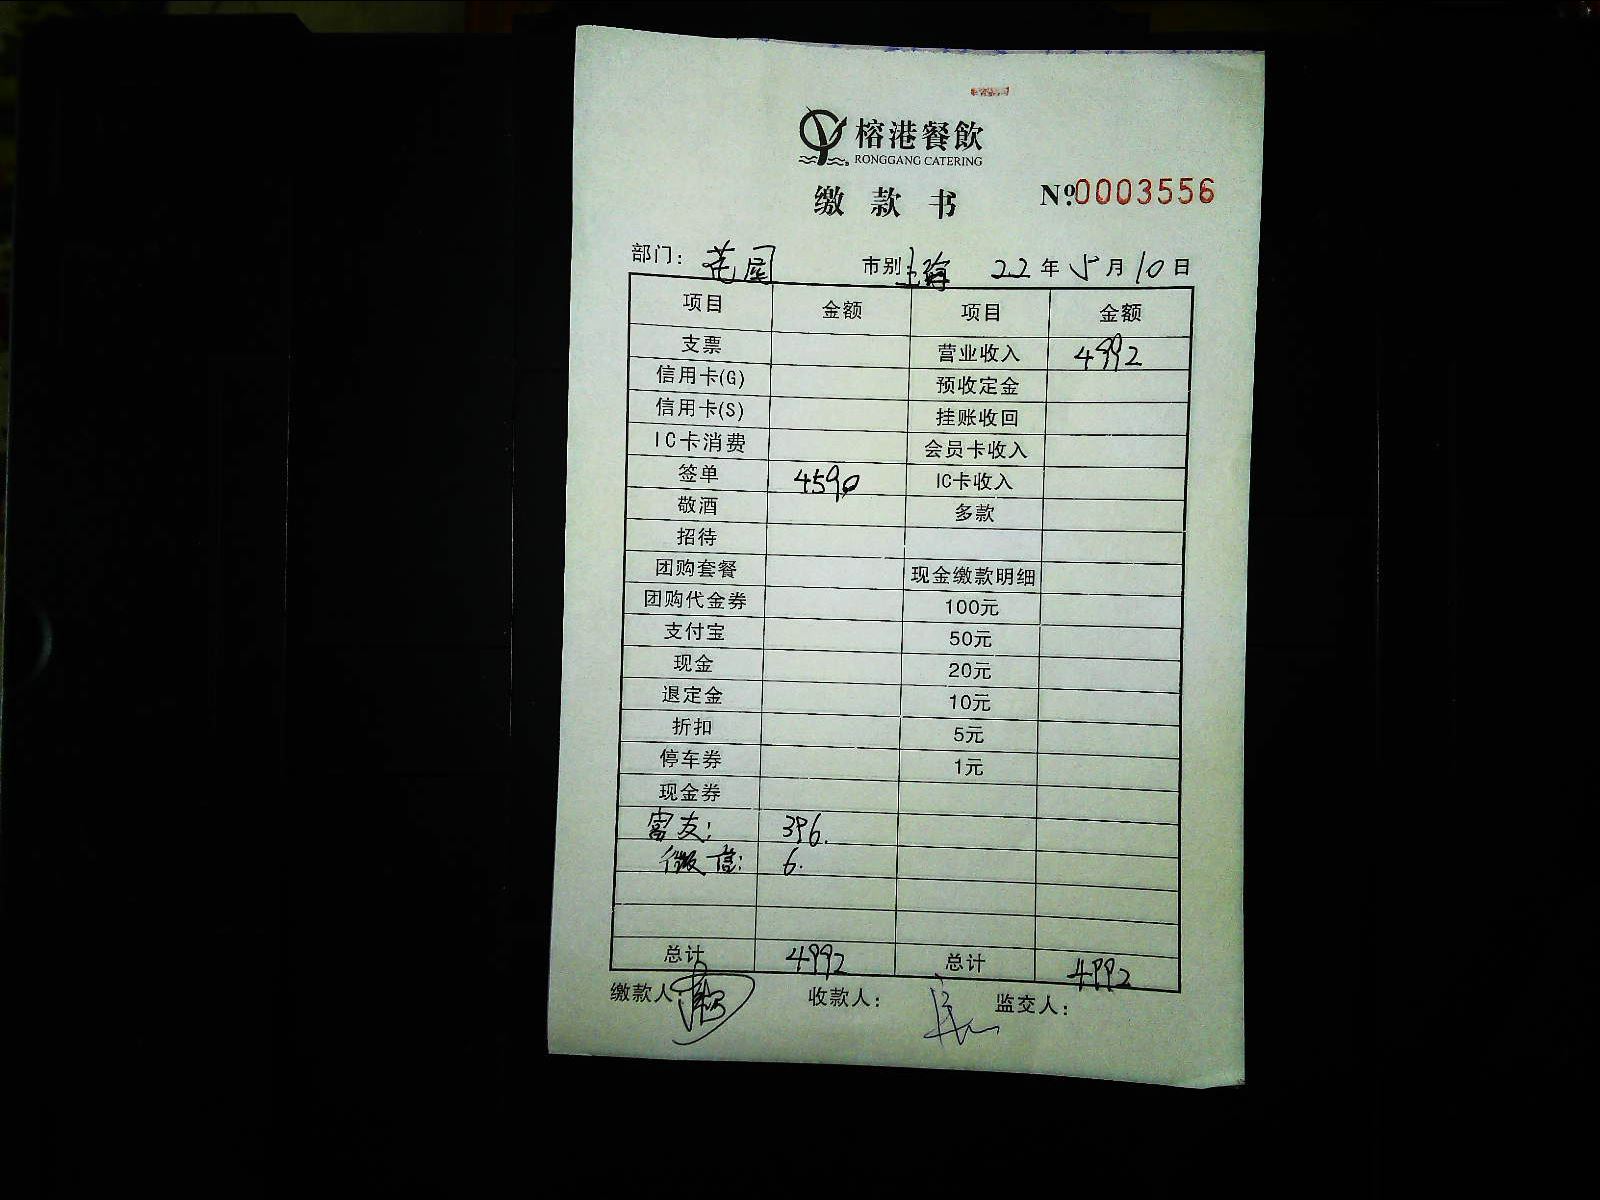 榕港餐飲
RONGGANG CATERING
缴款书 №0003556
部门：花园 市别 上海 22年5月10日
项目 金额 项目 金额
支票 营业收入 4992
信用卡(G) 预收定金
信用卡(S) 挂账收回
IC卡消费 会员卡收入
签单 4590 IC卡收入
敬酒 多款
招待
团购套餐 现金缴款明细
团购代金券 100元
支付宝 50元
现金 20元
退定金 10元
折扣 5元
停车券 1元
现金券
富友： 396.
微信： 6.
总计 4992 总计 4992
缴款人： 收款人： 监交人：